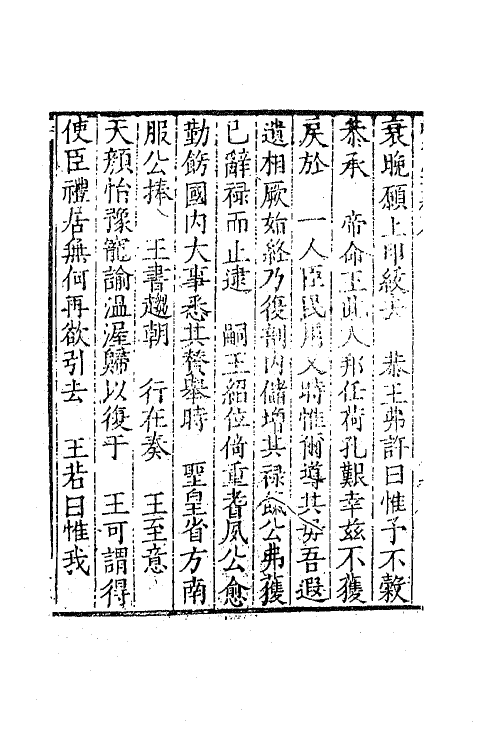 衰晚願上印綬去　恭王弗許曰惟予不穀
恭承　帝命王此人邦任荷孔艱幸茲不獲
戾於　一人臣民用乂時惟爾導其毋吾遐
遺相厥始終乃復剖內儲增其祿餼公弗獲
已辭祿而止逮　嗣王紹位倚重耆夙公愈
勤飭國內大事悉其贊舉時　聖皇省方南
服公捧　王書趨朝　行在奏　王至意
天顏怡豫寵諭溫渥歸以復于　王可謂得
使臣禮居無何再欲引去　王若曰惟我